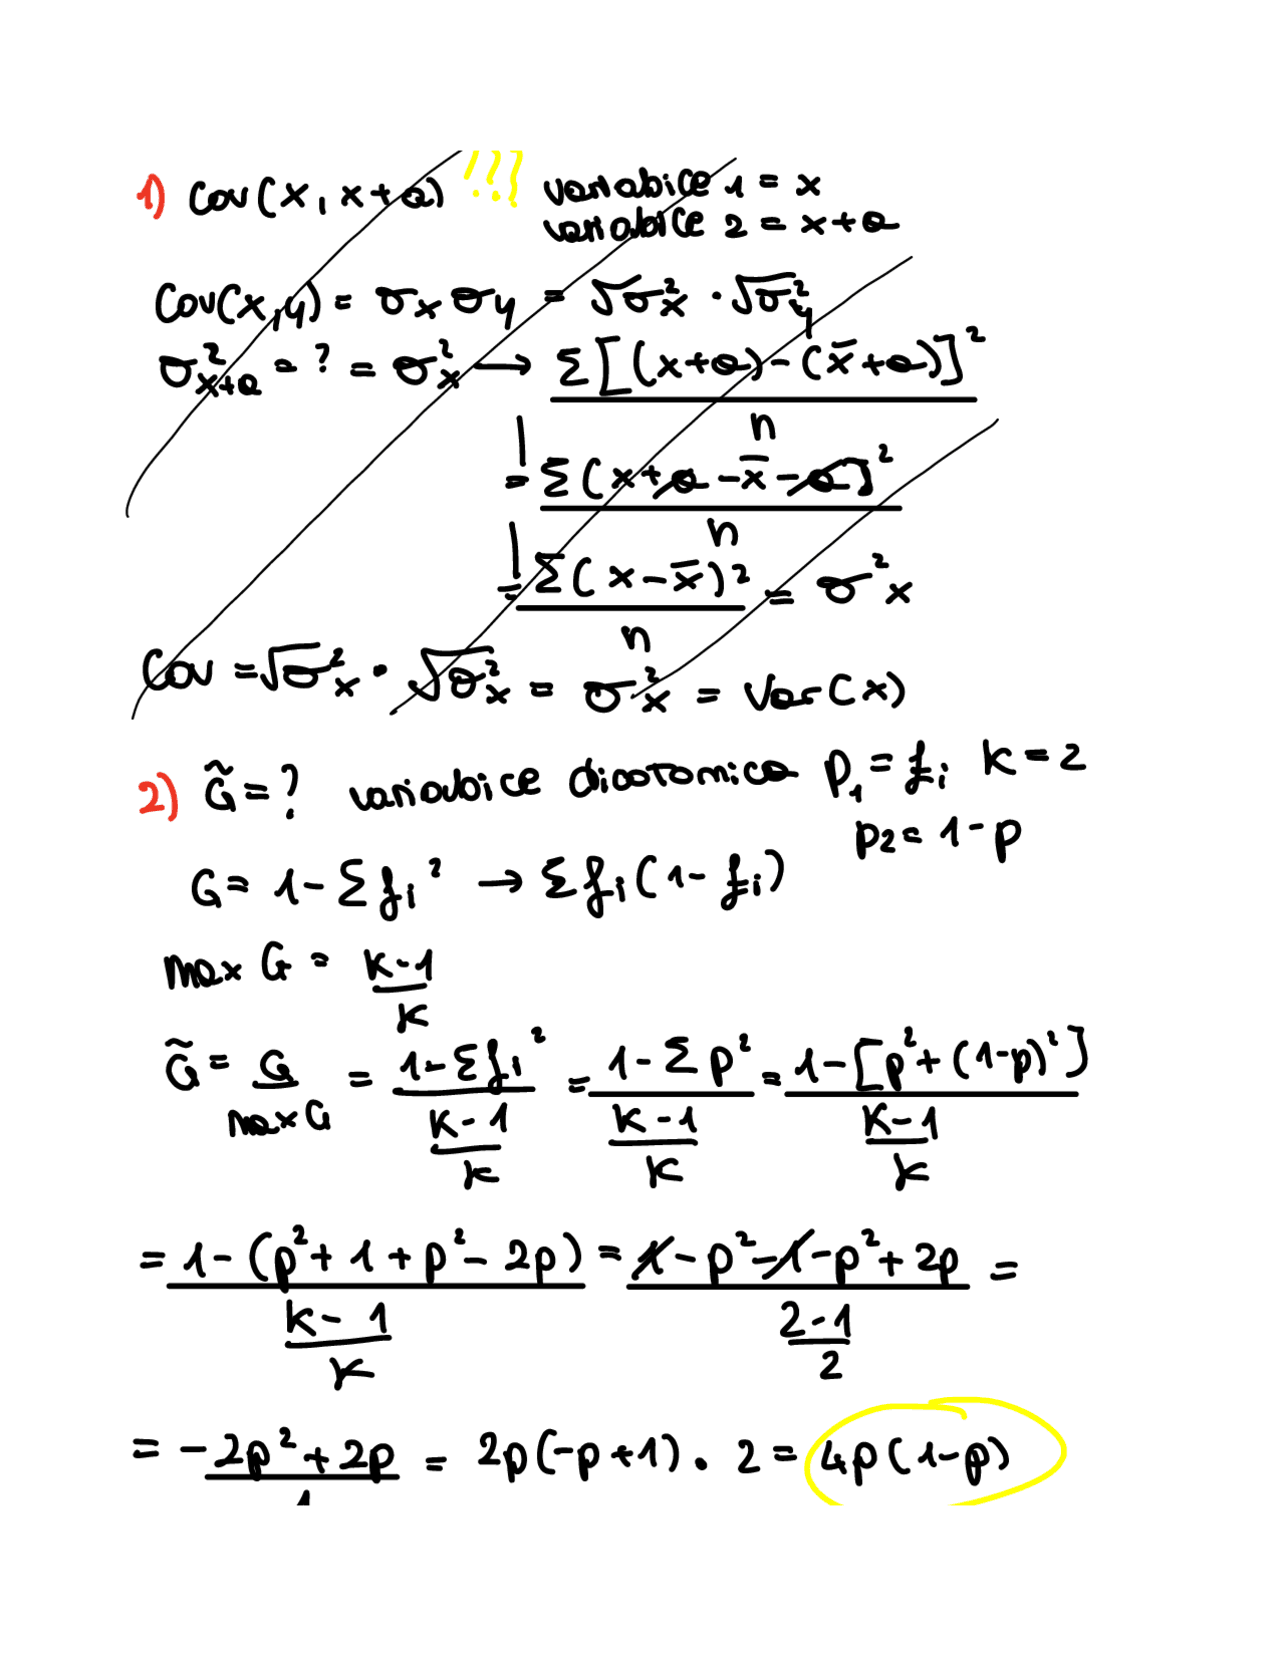 1) Cov(x, x+a) !!! variabile 1 = x
variabile 2 = x+a
Cov(x,y) = σx σy = √σ²x · √σ²y
σ²x+a = ? = σ²x → Σ[(x+a)-(x̄+a)]² / n
= Σ(x+a-x̄-a]² / n
= Σ(x-x̄)² / n = σ²x
Cov = √σ²x · √σ²x = σ²x = Var(x)
2) G̃ = ? variabile dicotomica p₁ = fi k = 2
p2 = 1-p
G = 1-Σfi² → Σfi(1-fi)
max G = k-1 / k
G̃ = G / max G = 1-Σfi² / k-1 / k = 1-Σp² / k-1 / k = 1-[p²+(1-p)²] / k-1 / k
= 1-(p²+1+p²-2p) / k-1 / k = 1-p²-1-p²+2p / 2-1 / 2 =
= -2p²+2p / 1 = 2p(-p+1) · 2 = 4p(1-p)